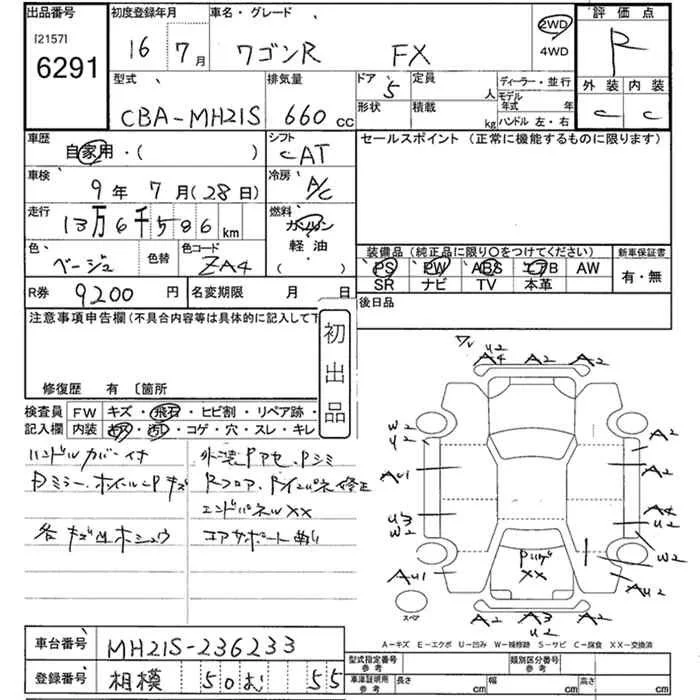 出品番号
[2157]
6291
初度登録年月
16 7月
車名・グレード
ワゴンR FX
2WD
4WD
評価点
R
外装 内装
C C
型式
CBA-MH21S
排気量
660cc
ドア
5
形状
定員
人
積載
kg
ディーラー・並行
モデル
年式 年
ハンドル 左・右
車歴
自家用・( )
シフト
CAT
セールスポイント (正常に機能するものに限ります)
車検
9年 7月(28日)
冷房
A/C
走行
13万6千586km
燃料
ガソリン
軽油
( )
色
ベージュ
色替
色コード
ZA4
装備品(純正品に限り○をつけてください)
PS PW ABS エアB AW
SR ナビ TV 本革
新車保証書
有・無
R券
9200円
名変期限 月 日
後日品
注意事項申告欄(不具合内容等は具体的に記入して下
初出品
修復歴 有 〔箇所
検査員
記入欄
FW キズ・飛石・ヒビ割・リペア跡・
内装 キズ・汚レ・コゲ・穴・スレ・キレ
ハンドルカバー付
Pミラー、ホイールPキズ
各キズ凹ホシュウ
外装PアセPシミ
Rフロア、Rインパネ修正
エンドパネルXX
コアサポート曲り
U2
A4 A2 A2
W2
Y2
A2
AU1
A2
U3
W2
A4
U2
W2
AU1
AU2
XX
A2 A3 A2
U2
スペア
A-キズ E-エクボ U-凹み W-補修跡 S-サビ C-腐食 XX-交換済
車台番号
MH21S-236233
登録番号
相模 50 む 55
型式指定番号
参考
類別区分番号
参考
車庫証明用
参考
長さ cm 幅 cm 高さ cm